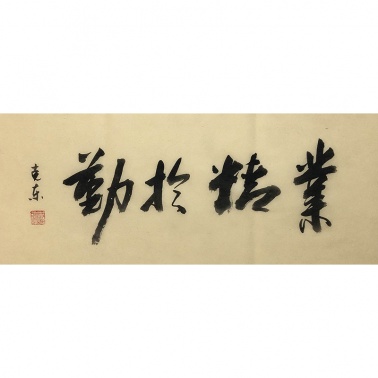 業精於勤
克东